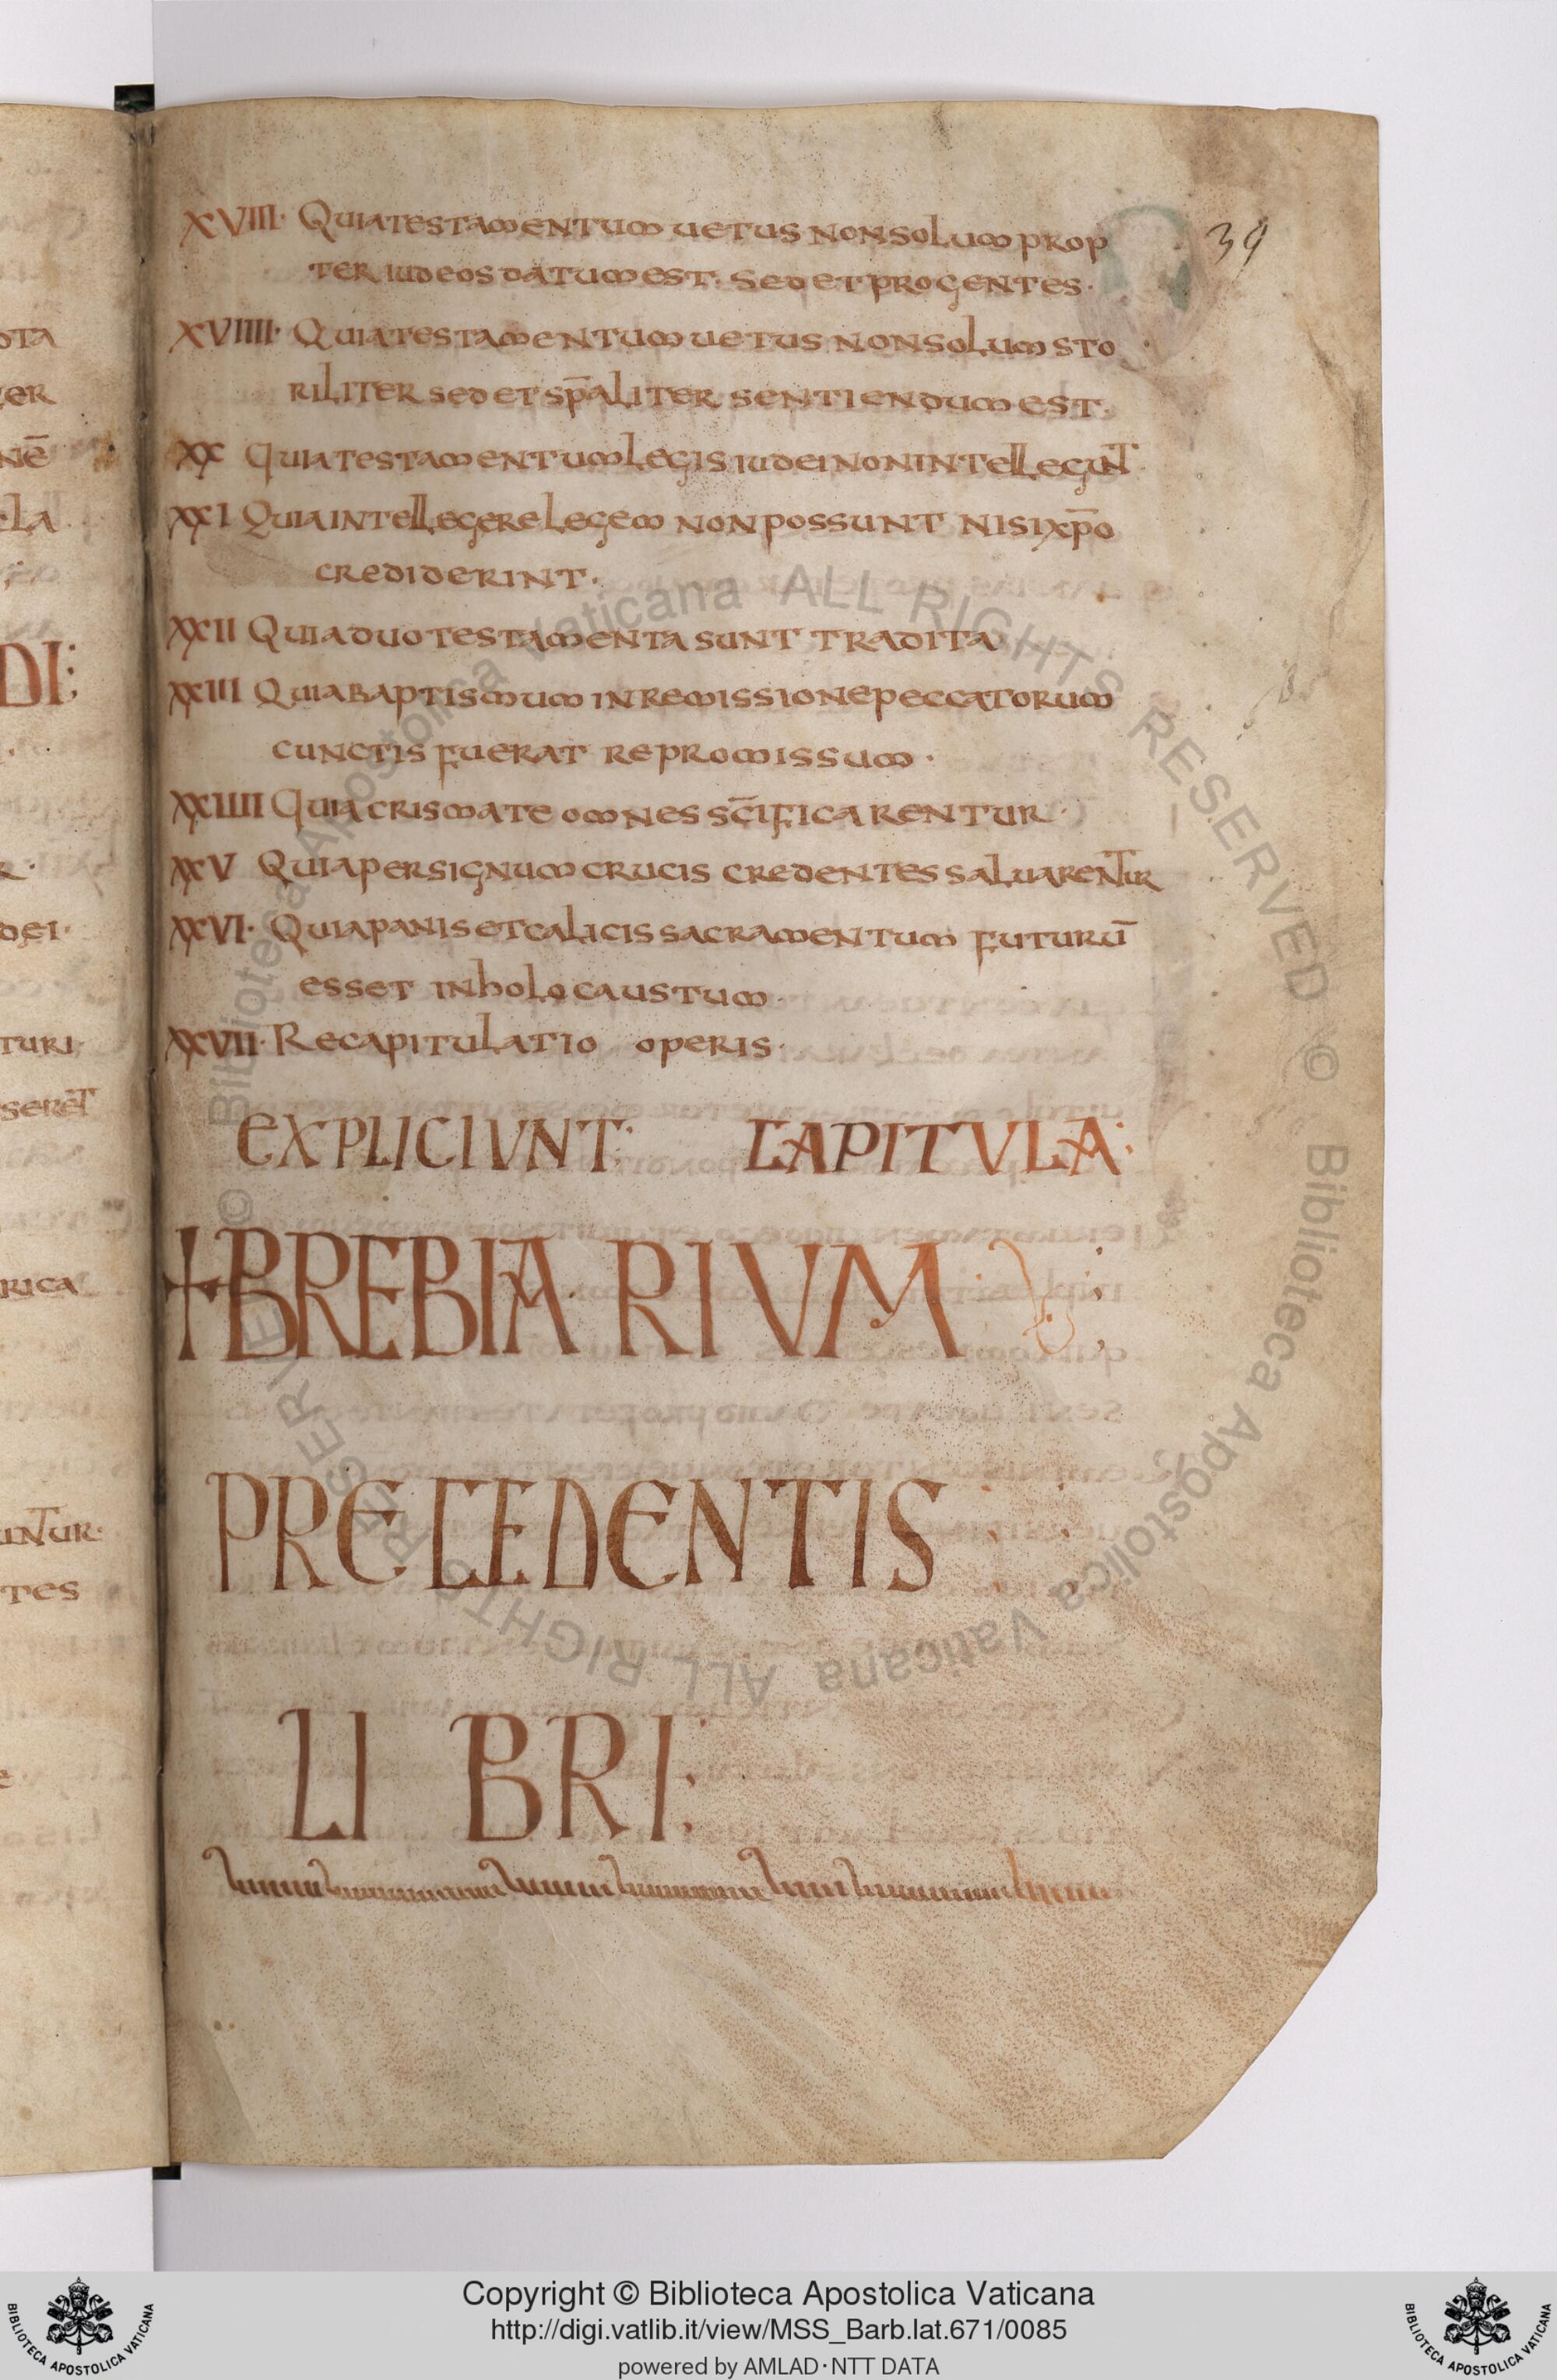 39
XVIII· Quia testamentum uetus non solum prop
ter iudeos datum est. sed et pro gentes·
XVIIII· Quia testamentum uetus non solum sto
riliter sed et sp̄aliter sentiendum est.
XX Quia testamentum legis iudei non intellegunt
XXI Quia intellegere legem non possunt nisi xp̄o
crediderint·
XXII Quia duo testamenta sunt tradita
XXIII Quia baptismum in remissione peccatorum
cunctis fuerat repromissum·
XXIIII Quia crismate omnes sc̄ificarentur·
XXV Quia per signum crucis credentes saluarentur
XXVI· Quia panis et calicis sacramentum futurū
esset in holocaustum·
XXVII· Recapitulatio operis·
EXPLICIUNT: CAPITVLA:
+BREBIARIVM
PRECEDENTIS
LIBRI:
Copyright © Biblioteca Apostolica Vaticana
http://digi.vatlib.it/view/MSS_Barb.lat.671/0085
powered by AMLAD·NTT DATA
BIBLIOTECA APOSTOLICA VATICANA
BIBLIOTECA APOSTOLICA VATICANA
© Biblioteca Apostolica Vaticana ALL RIGHTS RESERVED © Biblioteca Apostolica Vaticana ALL RIGHTS RESERVED